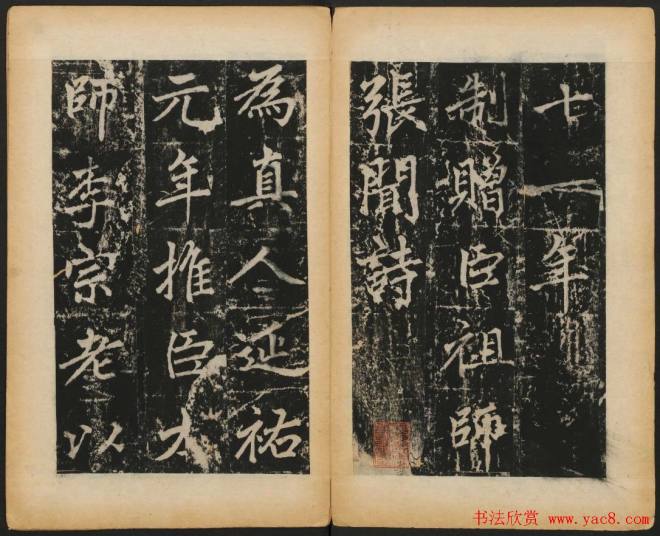 十一年
制贈臣祖師
張聞詩
為真人延祐
元年推臣太
師李宗老以
书法欣赏 www.yac8.com